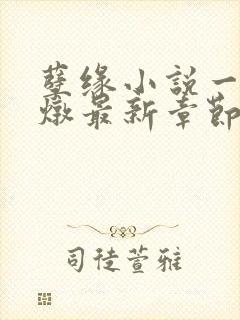 孽缘小说一
燉最新章節
司徒萱雅